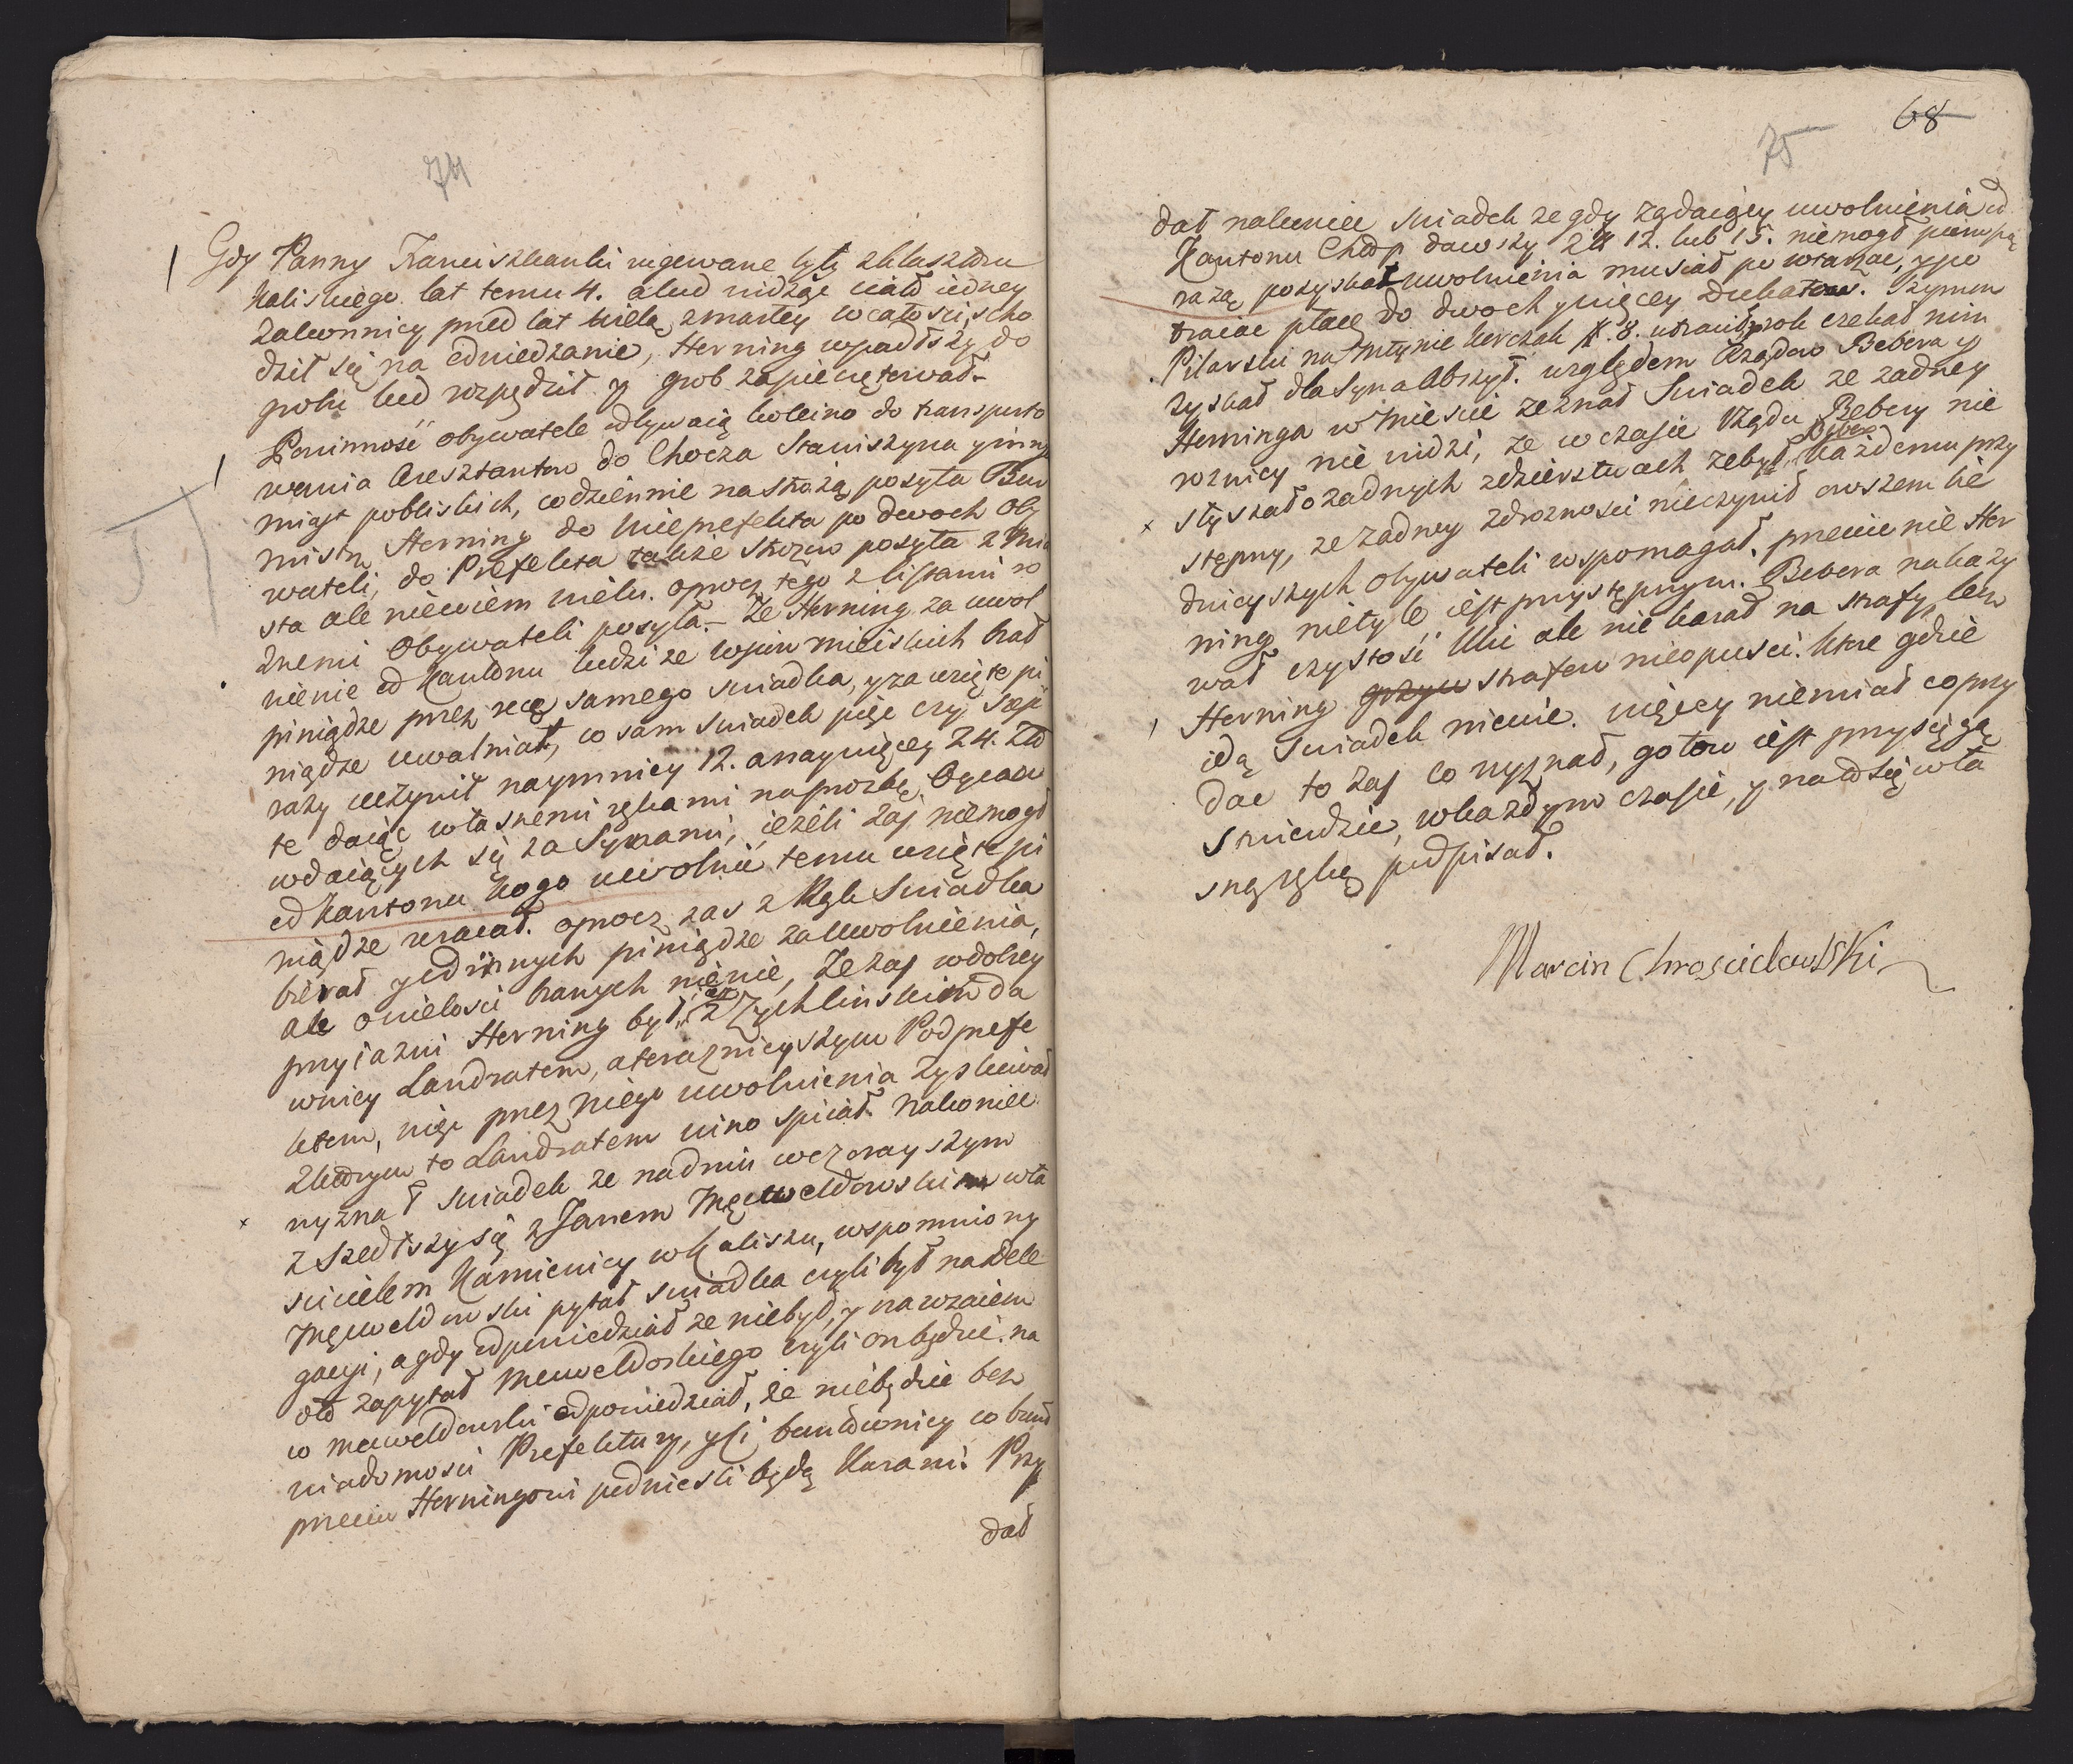 74
Gdy Panny Franciszkanki rugowane były z klasztoru
Kaliskiego lat temu 4. a lud widząc ciało iedney
Zakonnicy przed lat wielą zmarłey w całości, scho
dził się na odwiedzanie, Herning wpadłszy do
grobu lud rozpędził y grob zapieczętował.
Powinność obywatele odbywaią koleino do transporto
wania Aresztantow do Chocza Staniszyna y innych
miast pobliskich, codziennie na strożą posyła Bur
mistrz Herning do Wiceprefekta po dwoch Oby
wateli, do Prefekta także strożow posyła z Mia
sta ale niewiem wielu. oprocz tego z listami ro
żnemi Obywateli posyła. Ze Herning za uwol
nienie od Kantonu ludzi ze wsiow mieiskich brał
piniądze przez ręce samego swiadka, y za wzięte pi
niądze uwalniał, co sam swiadek pięć czy sześć
razy uczynił naymniey 12. a naywięcey 24. Złł
te daiąc własnemi rękami na prozbę Oycow
wdaiących się za Synami, ieżeli zaś niemogł
od Kantonu kogo uwolnić temu wzięte pi
niądze wracał. oprocz zas z Rąk Swiadka
bierał y od innych piniądze za uwolnienia,
ale o wielości branych niewie, Ze zaś w dobrey
przyiazni Herning był, iest z Zychlinskim da
wniey Landratem, a teraznieyszym Podprefe
ktem, więc przez niego uwolnienia zyskiwał
z ktorym to Landratem wino spiiał. nakoniec
wyznał swiadek ze na dniu wczorayszym
zszedłszy się z Janem Męweldowskim wła
scicielem Kamienicy w Kaliszu, wspomniony
Męweldowski pytał swiadka czyli był na Dele
gacyi, a gdy odpowiedział ze niebył, y nawzaiem
otto zapytał Meweldoskiego czyli on będzie na
co Meweldowski odpowiedział, że niebędzie bez
wiadomosci Prefektury, y ci buntownicy co bunt
przeciw Herningowi podniesli będą karani. Przy
dał
68
75
dał nakoniec swiadek ze gdy żądaiący uwolnienia od
Kantonu Chłop dawszy Złł 12. lub 15. niemogł pierwszą
razą pozyskać uwolnienia musiał powtarzać, y po
traiac płacę do dwoch y więcey Dukatow. Szymon
Pilarski na Młynie Kerczak #. 8. utracił, rok czekał nim
zyskał dla Syna Abszyt. względem Rządow Bebera y
Herninga w Miescie zeznał Swiadek ze zadney
roznicy nie widzi, ze w czasie Urzędu Bebery nie
słyszał o zadnych zdzierstwach zebył Beber każdemu przy
stępny, ze zadney zdrożnosci nieczynił owszem bie
dnieyszych obywateli wspomagał. przeciwnie Her
ning nietyle iest przystępnym. Bebera nakazy
wał czystość Ulic ale nie karał na strafy, lecz
Herning strafow nieopusci. Ktore gdzie
idą Swiadek niewie. więcey niemiał co przy
dac to zaś co wyznał, gotow iest przysięgą
stwierdzic, w każdym czasie, y na to się wła
sną ręką podpisał.
Marcin Chroscielewski